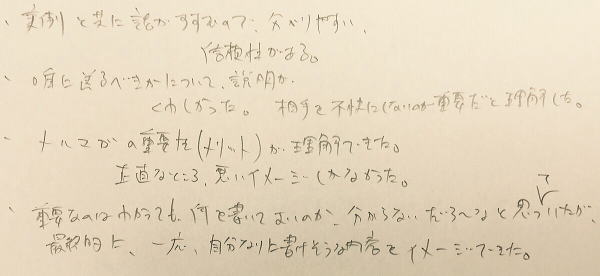 、実例と共に話がすすむので、分かりやすい、
信頼性がある。
、唯に送るべきかについて、説明が
くわしかった。 相手を不快にしないのが重要だと理解した。
、メルマガの重要性(メリット)が理解できた。
正直なところ、悪いイメージしかなかった。
、重要なのはわかっても、何を書いてよいのか、分からないだろ〜なと思っていたが、
最終的に、一応、自分なりに書けそうな内容をイメージできた。